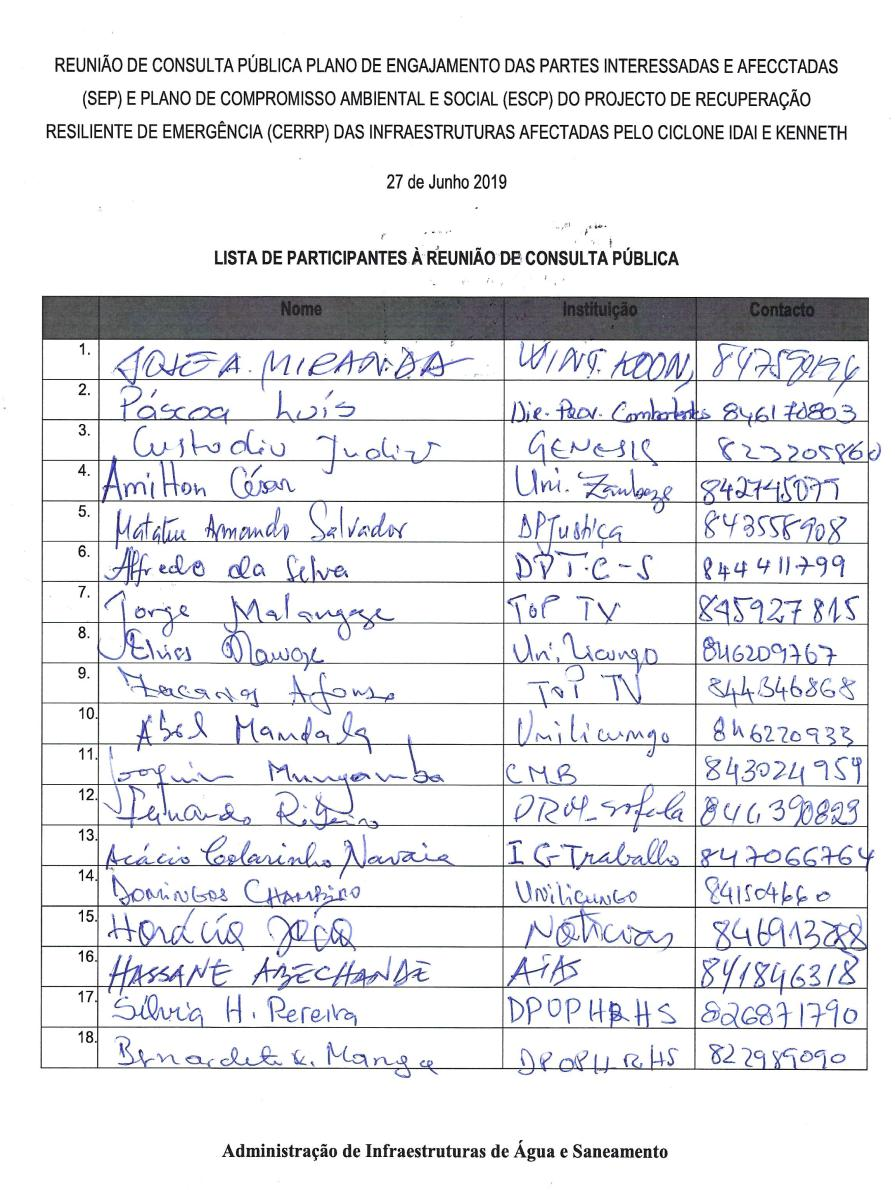 REUNIÃO DE CONSULTA PÚBLICA PLANO DE ENGAJAMENTO DAS PARTES INTERESSADAS E AFECCTADAS
(SEP) E PLANO DE COMPROMISSO AMBIENTAL E SOCIAL (ESCP) DO PROJECTO DE RECUPERAÇÃO
RESILIENTE DE EMERGÊNCIA (CERRP) DAS INFRAESTRUTURAS AFECTADAS PELO CICLONE IDAI E KENNETH
27 de Junho 2019
LISTA DE PARTICIPANTES À REUNIÃO DE CONSULTA PÚBLICA
Nome Instituição Contacto
1. JOSE A. MIRANDA
2. Páscoa Luís Die. Prov. Combatentes 846170803
3. Custodio GENESIS 823205860
4. Amilton César Uni. Zambeze 842745077
5. Matateu Armando Salvador DPJustiça 843558908
6. Alfredo da Silva DPT.C-S 844411799
7. Jorge Malangaze TOP TV 845927815
8. Elvies Uni.Licungo 846209767
9. Afonso TOP TV 844346868
10. Abel Mandala Unilicungo 846220933
11. Joaquim Mungamba CMB 843024959
12. Fernando Ribeiro 844390823
13. Acácio Colarinho Navaia IGTraballo 847066764
14. DOMINGOS UNILICUNGO 841504660
15. Horácio João Notícias 846913288
16. HASSANE ABECHANDE AIAS 841846318
17. Sílvia H. Pereira DPOPHRHS 826871790
18. Manga DPOPHRHS 822989090
Administração de Infraestruturas de Água e Saneamento